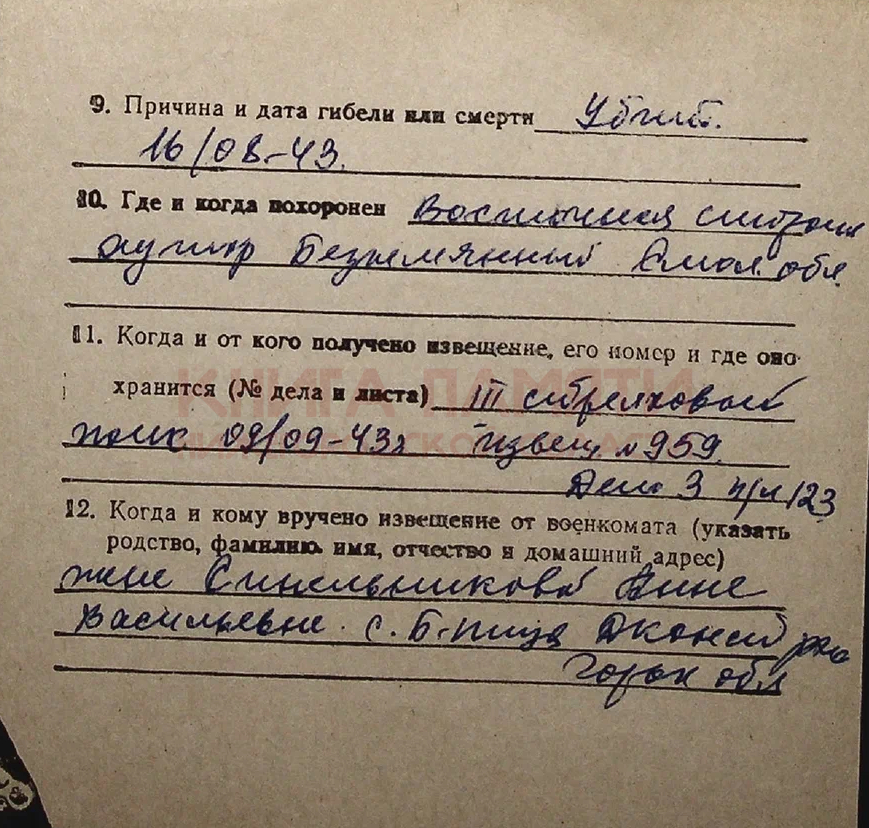 9. Причина и дата гибели или смерти Убит.
16/08-43.
10. Где и когда похоронен Восточная сторона
хутор Безымянный Смол. обл.
11. Когда и от кого получено извещение, его номер и где оно
хранится (№ дела и листа) III стрелковый
КНИГА ПАМЯТИ
полк 09/09-43г извещ №959
Дело 3 н/л 123
12. Когда и кому вручено извещение от военкомата (указать
родство, фамилию имя, отчество и домашний адрес)
жене Синельниковой Анне
Васильевне с. Б-пица р-на
Горьк обл